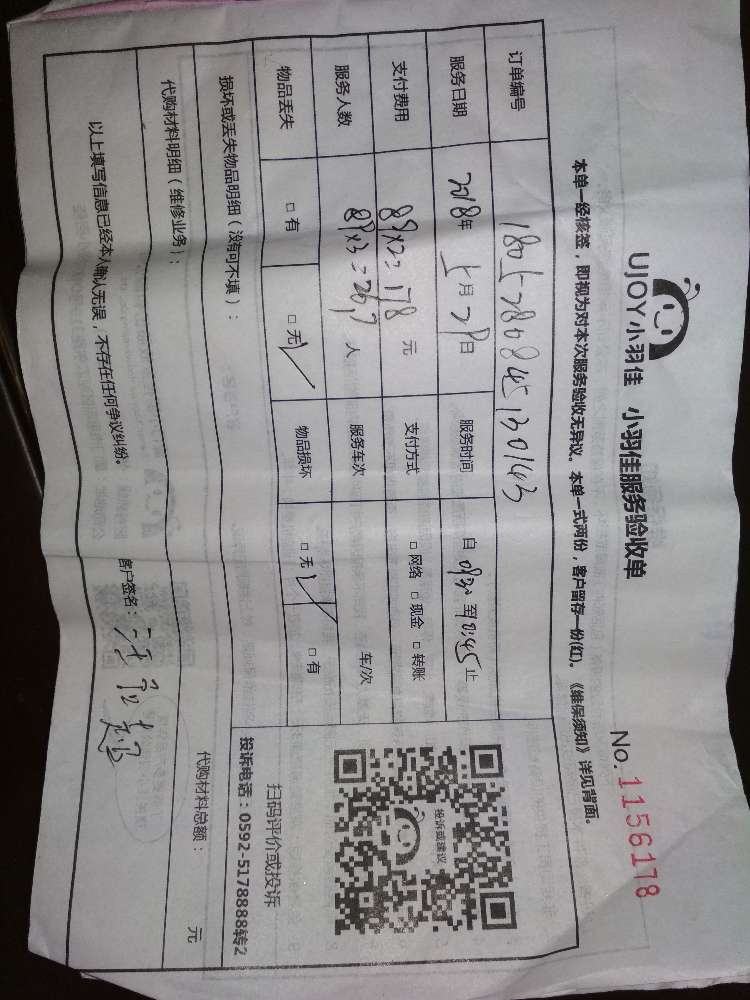 UJOY小羽佳 小羽佳服务验收单
No.1156178
本单一经核签，即视为对本次服务验收无异议。本单一式两份，客户留存一份(红)。《维保须知》详见背面。
订单编号 1805280845130143
服务日期 2018年5月28日 服务时间 自 至 止
支付费用 89×2=178 元 支付方式 □网络 □现金 □转账
服务人数 89×3=267 人 服务车次 车/次
物品丢失 □有 □无✓ 物品损坏 □无✓ □有
损坏或丢失物品明细（没有可不填）：
代购材料明细（维修业务）： 代购材料总额： 元
以上填写信息已经本人确认无误，不存在任何争议纠纷。 客户签名：
投诉或建议
扫码评价或投诉
投诉电话：0592-5178888转2